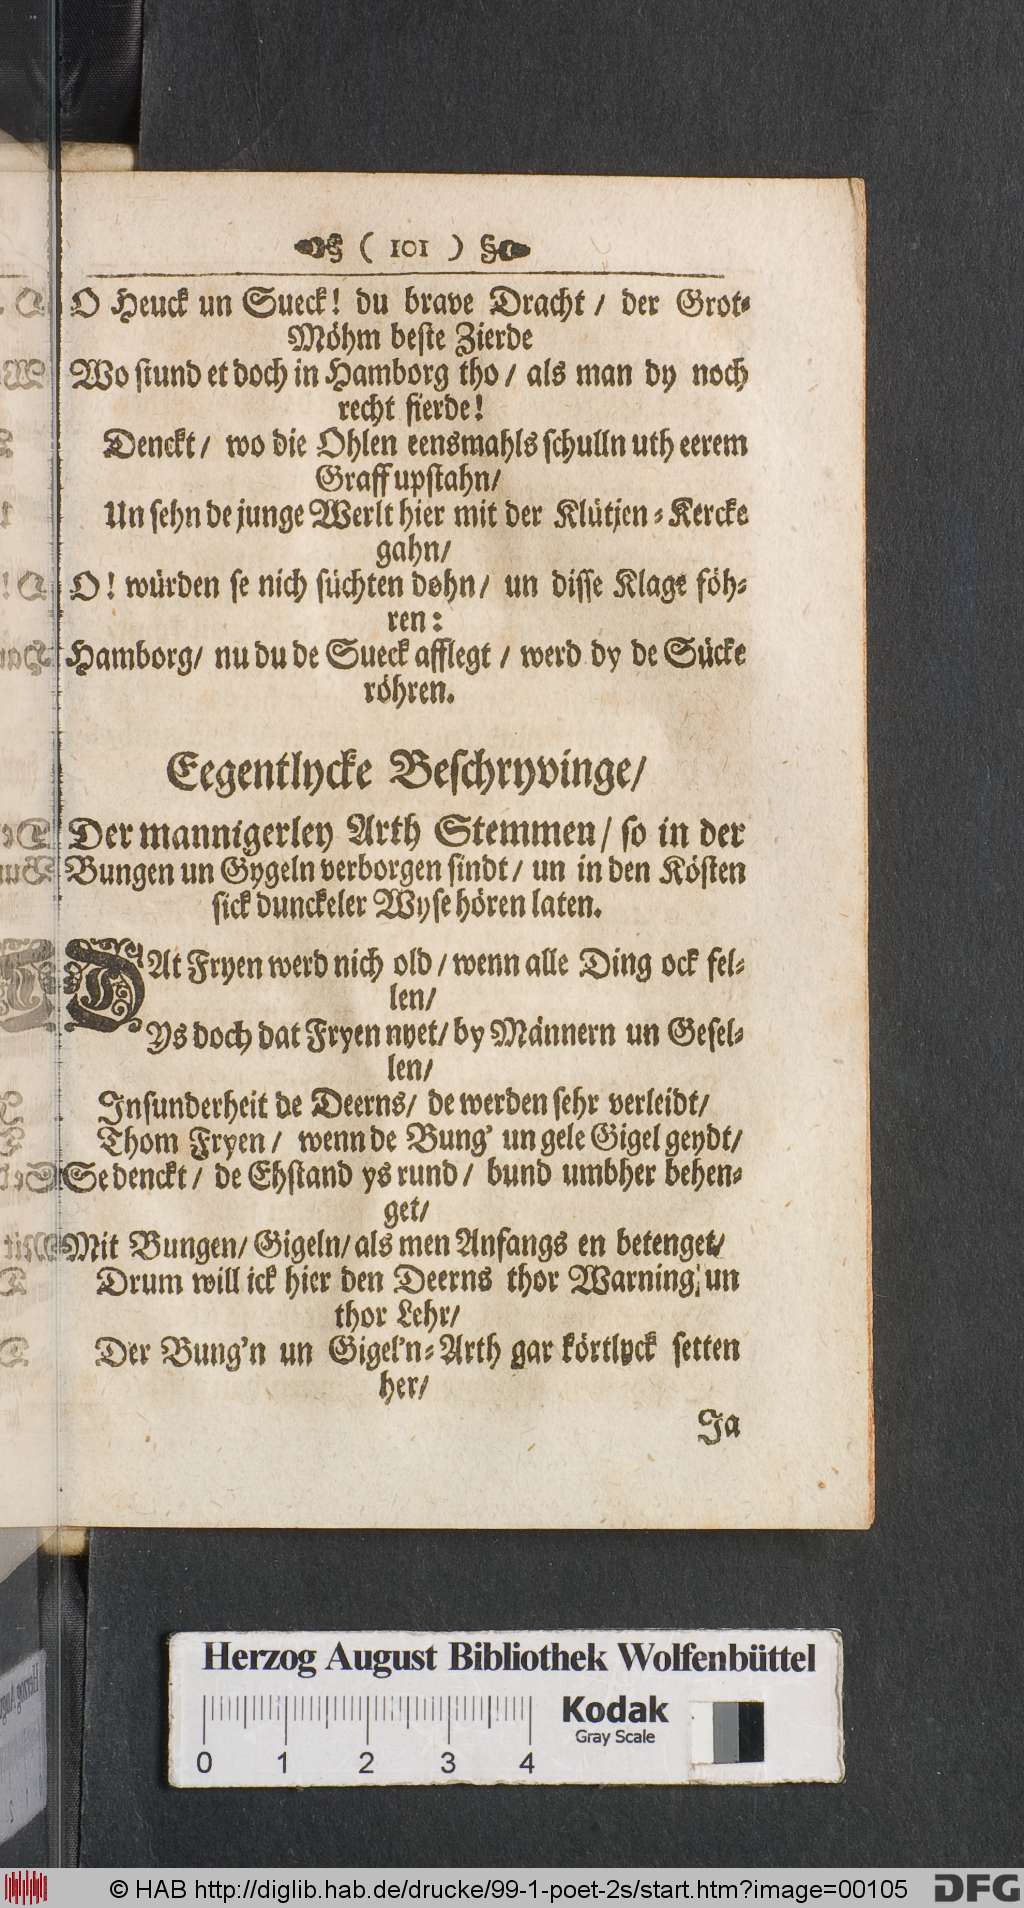 ( 101 )
O Heuck un Sueck! du brave Dracht / der Grot-
Möhm beste Zierde
Wo stund et doch in Hamborg tho / als man dy noch
recht fierde!
Denckt / wo die Ohlen eensmahls schulln uth eerem
Graff upstahn/
Un sehn de junge Werlt hier mit der Klütjen-Kercke
gahn/
O! würden se nich süchten dohn/ un disse Klage föh-
ren:
Hamborg/ nu du de Sueck afflegt / werd dy de Sücke
röhren.
Eegentlycke Beschryvinge/
Der mannigerley Arth Stemmen/ so in der
Bungen un Gygeln verborgen sindt/ un in den Kösten
sick dunckeler Wyse hören laten.
DAt Fryen werd nich old / wenn alle Ding ock fel-
len/
Ys doch dat Fryen nyet/ by Männern un Gesel-
len/
Insunderheit de Deerns/ de werden sehr verleidt/
Thom Fryen / wenn de Bung' un gele Gigel geydt/
Se denckt / de Ehstand ys rund / bund umbher behen-
get/
Mit Bungen/ Gigeln/ als men Anfangs en betenget/
Drum will ick hier den Deerns thor Warning/ un
thor Lehr/
Der Bung'n un Gigel'n-Arth gar körtlyck setten
her/
Ja
Herzog August Bibliothek Wolfenbüttel
Kodak
Gray Scale
0 1 2 3 4
© HAB http://diglib.hab.de/drucke/99-1-poet-2s/start.htm?image=00105
DFG